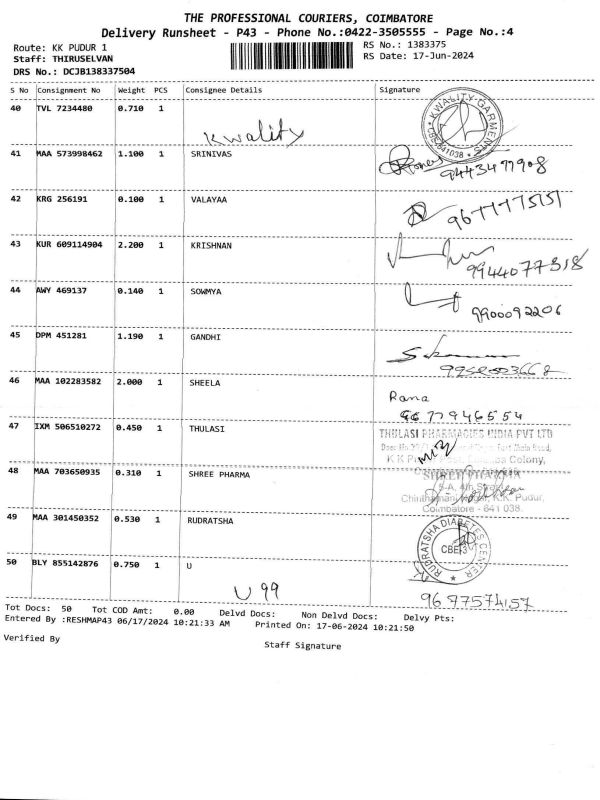 THE PROFESSIONAL COURIERS, COIMBATORE
Delivery Runsheet - P43 - Phone No.:0422-3505555 - Page No.:4
Route: KK PUDUR 1
RS No.: 1383375
Staff: THIRUSELVAN
RS Date: 17-Jun-2024
DRS No.: DCJB138337504
S No Consignment No Weight PCS Consignee Details Signature
40 TVL 7234480 0.710 1
Kwality
KWALITY GARMENTS
CBE-641038
41 MAA 573998462 1.100 1 SRINIVAS
9443477908
42 KRG 256191 0.100 1 VALAYAA
43 KUR 609114904 2.200 1 KRISHNAN
9944077318
44 AWY 469137 0.140 1 SOWMYA
9900092206
45 DPM 451281 1.190 1 GANDHI
46 MAA 102283582 2.000 1 SHEELA
Rana
9677946554
47 IXM 506510272 0.450 1 THULASI
THULASI PHARMACIES INDIA PVT LTD
Colony,
48 MAA 703650935 0.310 1 SHREE PHARMA
SHREE PHARMA
K.K. Pudur,
Coimbatore - 641 038.
49 MAA 301450352 0.530 1 RUDRATSHA
RUDRATSHA DIABETES CENTER
CBE-3
50 BLY 855142876 0.750 1 U
U 99
9697574157
Tot Docs: 50 Tot COD Amt: 0.00 Delvd Docs: Non Delvd Docs: Delvy Pts:
Entered By :RESHMAP43 06/17/2024 10:21:33 AM Printed On: 17-06-2024 10:21:50
Verified By
Staff Signature